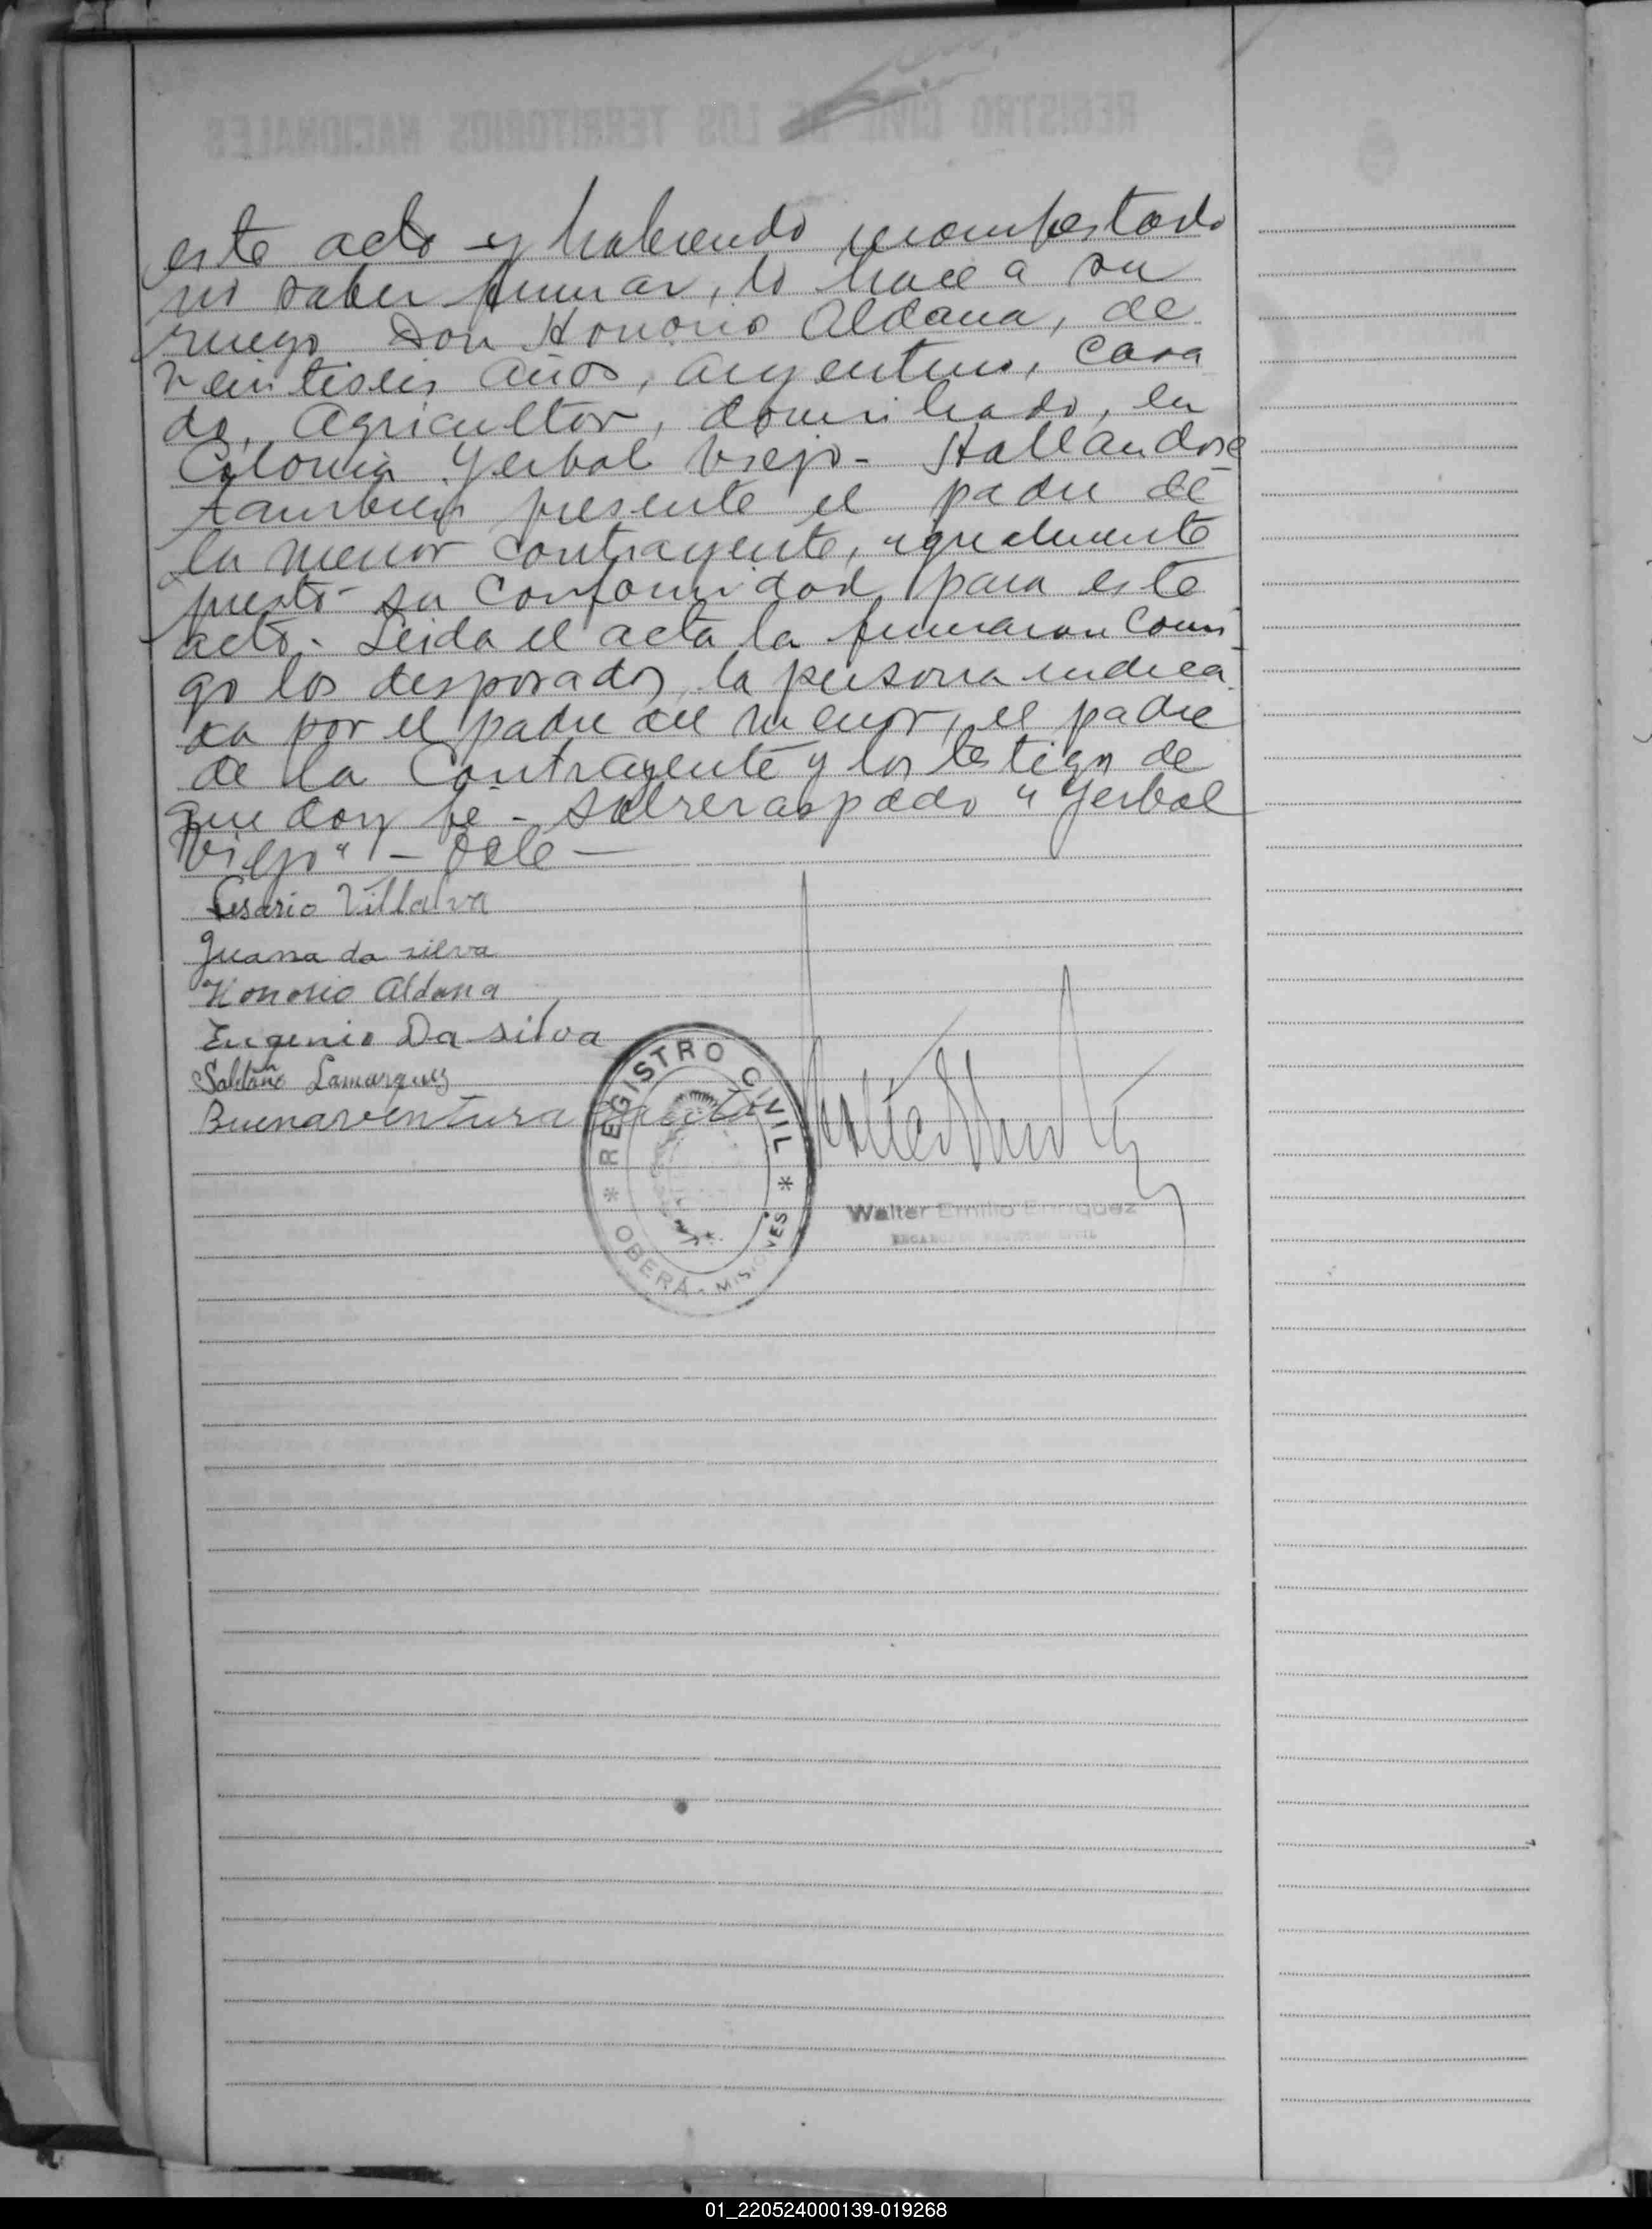 este acto y habiendo manifestado
no saber firmar, lo hace a su
ruego Don Honorio Aldana, de
veintiseis años, argentino, casa
do, agricultor, domiciliado, en
Colonia Yerbal Viejo - Hallandose
tambien presente el padre de
la menor contrayente, igualmente
presto su conformidad para este
acto - Leida el acta la firmaron conmi
go los desposados, la persona indica
da por el padre del menor, el padre
de la contrayente y los testigos de
que doy fé - Sobreraspado "Yerbal
Viejo" - Vale -
Cesario Villalva
Juana da silva
Honorio Aldana
Eugenio Da silva
Lamarques
Buenaventura
REGISTRO CIVIL
* OBERÁ - MISIONES *
Walter Emilio Enriquez
ENCARGADO REGISTRO CIVIL
01_220524000139-019268